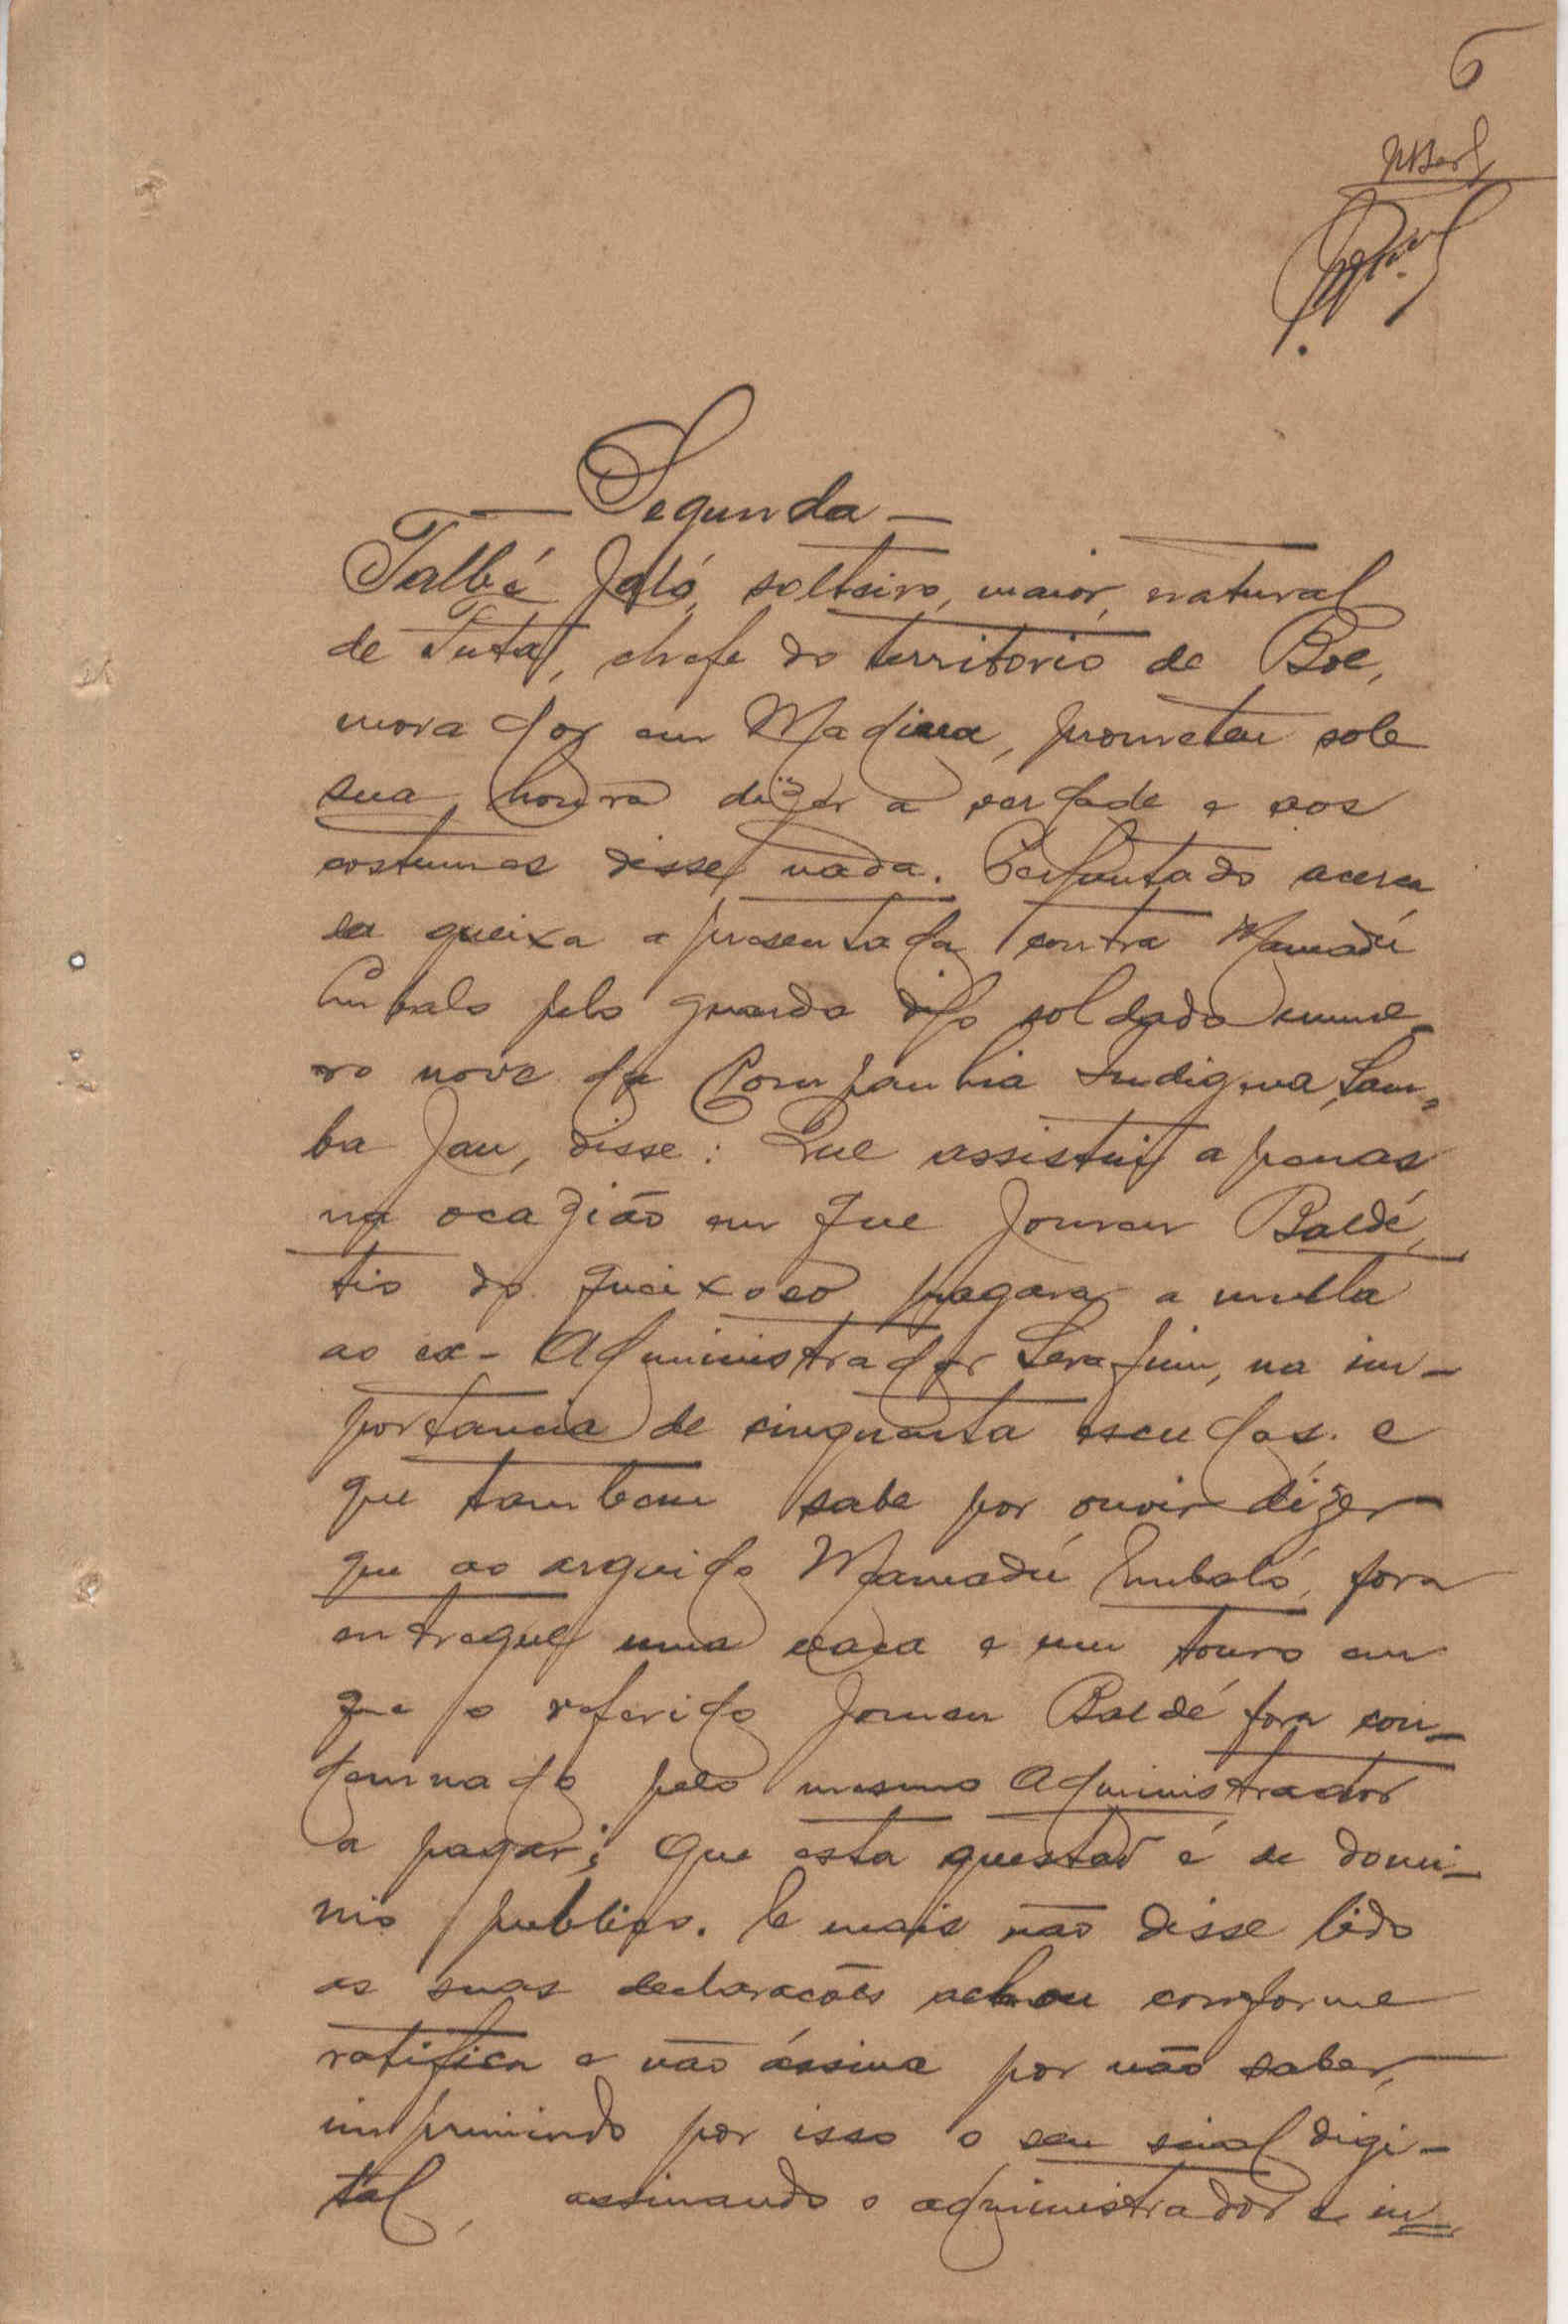 6
— Segunda —
Talbé Jaló, solteiro, maior, natural
de Futa, chefe do territorio de Boe,
morador em Madina, prometeu sob
sua honra dizer a verdade e aos
costumes disse nada. Perguntado acerca
da queixa apresentada contra Mamadú
Embalo pelo guarda digo soldado nume-
ro nove da Companhia Indigena, Sam-
ba Jau, disse: Que assistiu apenas
na ocazião em que Jomem Baldé,
tio do queixoso pagara a multa
ao ex-Administrador Serafim, na im-
portancia de cinquenta escudos. e
que tambem sabe por ouvir dizer
que ao arguido Mamadú Embaló, fora
entregue uma vaca e um touro em
que o referido Jomem Baldé fora con-
demnado pelo mesmo Administrador
a pagar; Que esta questão é de domi-
nio publico. E mais não disse lido
as suas declarações achou conforme
ratifica e não assina por não saber,
imprimindo por isso o seu sinal digi-
tal, assinando o administrador e in-